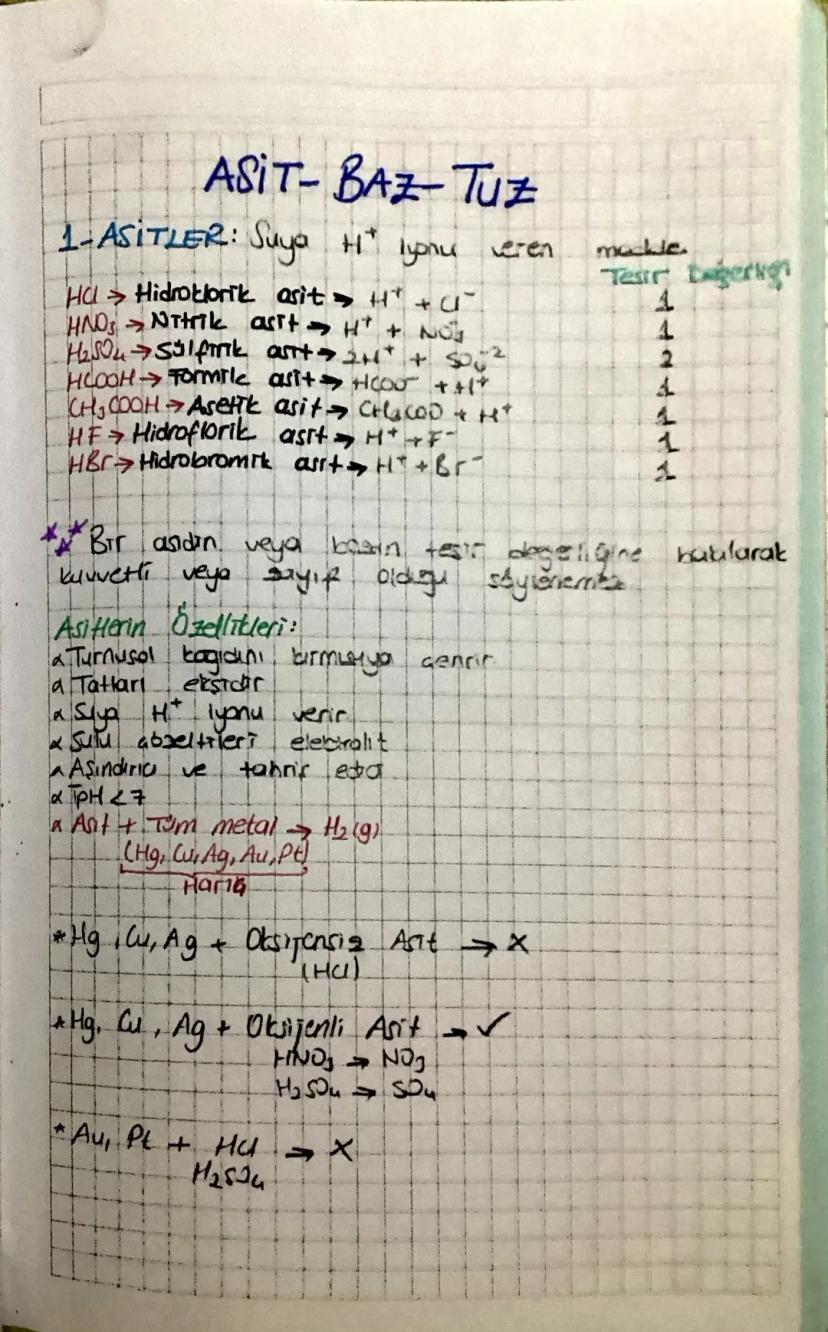 ASİT-BAZ-TUZ
1-ASİTLER: Suya H⁺ iyonu veren madde.
Tesir Değerliği
HCl → Hidroklorik asit → H⁺ + Cl⁻ 1
HNO₃ → Nitrik asit → H⁺ + NO₃⁻ 1
H₂SO₄ → Sülfirik asit → 2H⁺ + SO₄⁻² 2
HCOOH → Formik asit → HCOO⁻ + H⁺ 1
CH₃COOH → Asetik asit → CH₃COO + H⁺ 1
HF → Hidroflorik asit → H⁺ + F⁻ 1
HBr → Hidrobromik asit → H⁺ + Br⁻ 1
** Bir asidin veya bazın tesir değerliğine bakılarak
kuvvetli veya zayıf olduğu söylenemez
Asitlerin Özellikleri:
α Turnusol kağıdını kırmızıya çevirir
α Tatları ekşidir
α Suya H⁺ iyonu verir
α Sulu çözeltileri elektrolit
α Aşındırıcı ve tahriş edici
α pH < 7
α Asit + Tüm metal → H₂(g)
(Hg, Cu, Ag, Au, Pt)
Hariç
* Hg, Cu, Ag + Oksijensiz Asit → X
(HCl)
* Hg, Cu, Ag + Oksijenli Asit → ✓
HNO₃ → NO₃
H₂SO₄ → SO₄
* Au, Pt + HCl → X
H₂SO₄